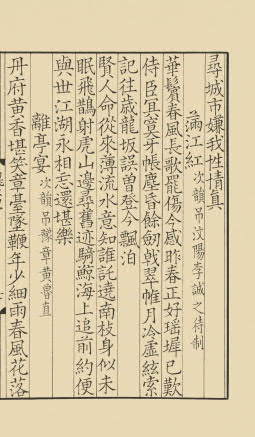 尋城市嫌我性情真
滿江紅 次韻吊汶陽李誠之待制
華鬢春風長歌罷傷今感昨春正好瑶墀已歎
侍臣冥寞牙帳塵昏餘劒戟翠帷月冷虛絃索
記往歲龍坂誤曾登今飄泊
賢人命從來薄流水意知誰託遶南枝身似未
眠飛鵲射虎山邊尋舊迹騎鯨海上追前約便
與世江湖永相忘還堪樂
離亭宴 次韻吊豫章黄魯直
丹府黄香堪笑章臺墜鞭年少細雨春風花落